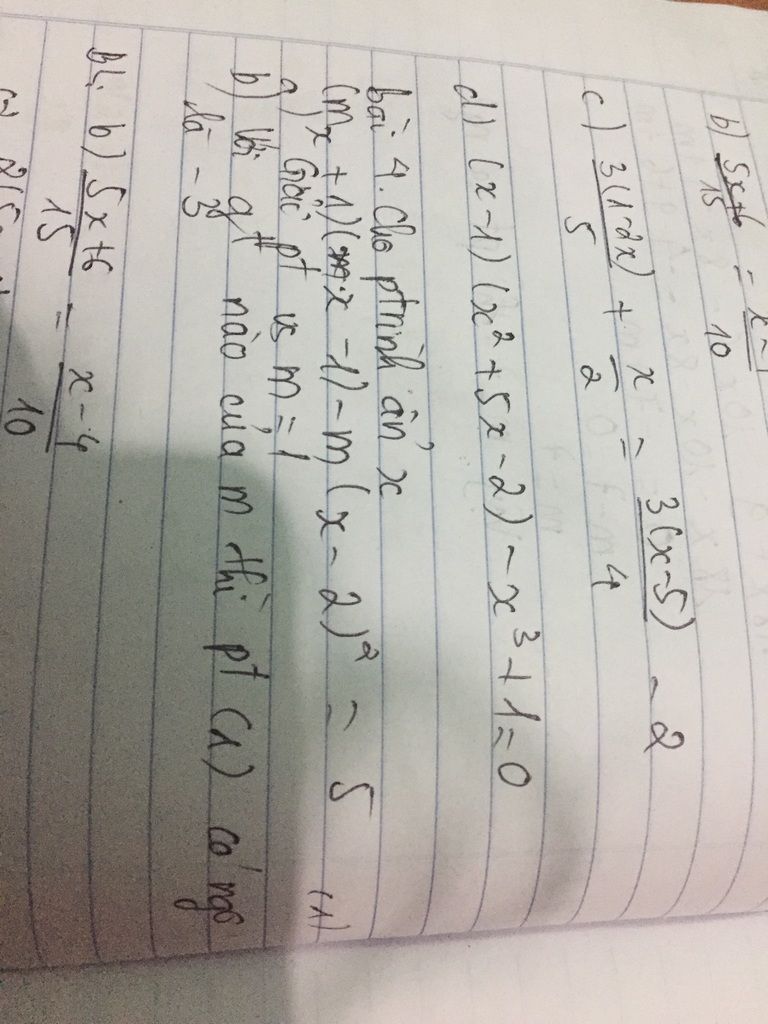 b) 5x+6/15 = x-1/10
c) 3(1-2x)/5 + x/2 = 3(x-5)/4 - 2
d) (x-1)(x² + 5x - 2) - x³ + 1 = 0
bài 4. Cho ptrình ẩn x
(mx + 1)(x - 1) - m(x - 2)² = 5 (1)
a) Giải pt vs m = 1
b) với gt nào của m thì pt (1) có ngo
là -3
b) 5x+6/15 = x-4/10